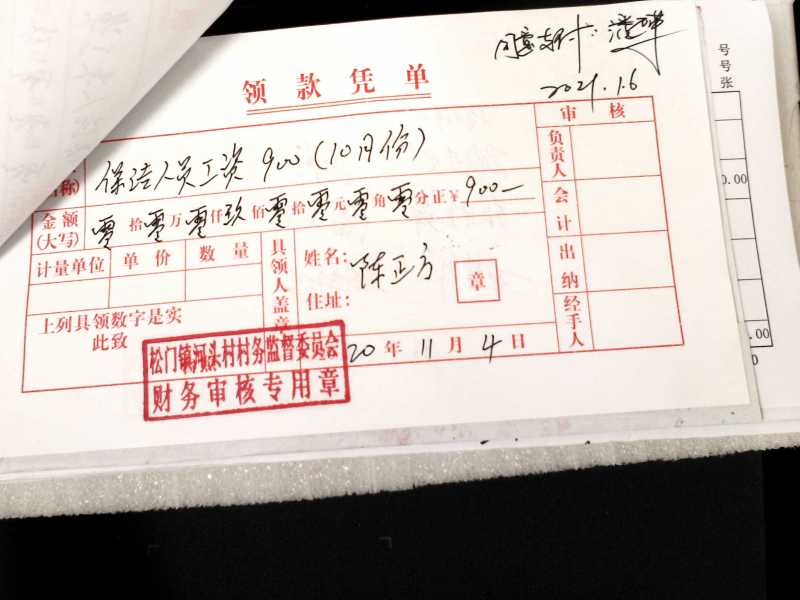 同意支付
2021.1.6
领款凭单
号
号
张
审核
称)
保洁人员工资 900 (10月份)
负责人
金额
(大写)
零拾零万零仟玖佰零拾零元零角零分正¥900—
会计
计量单位 单价 数量
具领人盖章
姓名: 陈正方
章
住址:
出纳
上列具领数字是实
此致
经手人
20年11月4日
松门镇河头村村务监督委员会
财务审核专用章
0.00
.00